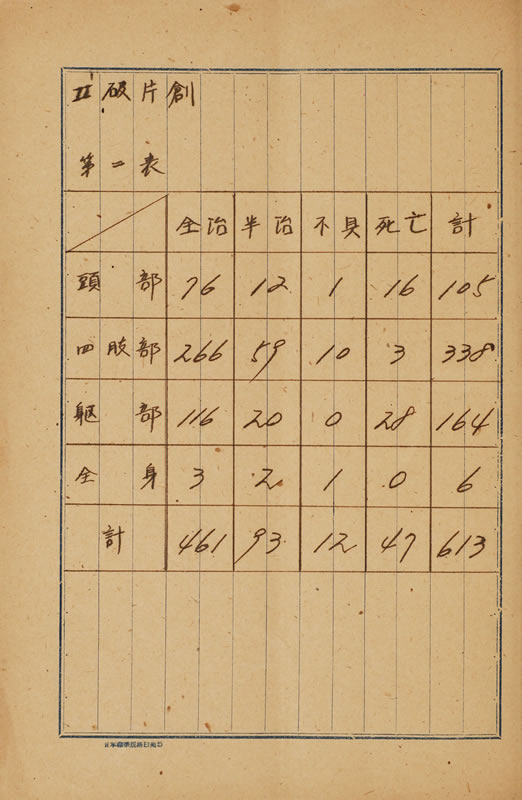 II 破片創
第二表
全治 半治 不具 死亡 計
頭部 76 12 1 16 105
四肢部 266 59 10 3 338
躯部 116 20 0 28 164
全身 3 2 1 0 6
計 461 93 12 47 613